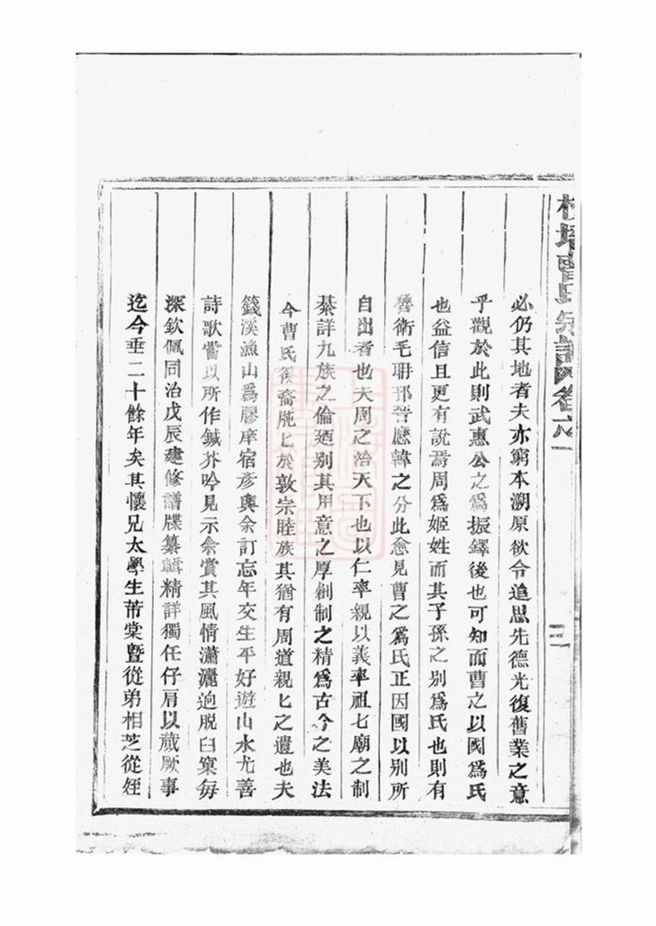 曹氏宗譜卷之
三
必仍其地者夫亦窮本溯原欲令追思先德光復舊業之意
乎觀於此則武惠公之為振鐸後也可知而曹之以國為氏
也益信且更有說焉周為姬姓而其子孫之別為氏也則有
魯衛毛聃邗晉應韓之分此愈見曹之為氏正因國以別所
自出者也夫周之治天下也以仁率親以義率祖七廟之制
綦詳九族之倫迺別其用意之厚創制之精為古今之美法
今曹氏後裔庀匕於敦宗睦族其猶有周道親匕之遺也夫
籛溪漁山為膠庠宿彥與余訂忘年交生平好遊山水尤善
詩歌嘗以所作鍼芥吟見示余賞其風情瀟灑逈脫臼窠每
深欽佩同治戊辰建修譜牒纂輯精詳獨任仔肩以蕆厥事
迄今垂二十餘年矣其懷兄太學生芾棠暨從弟相芝從姪